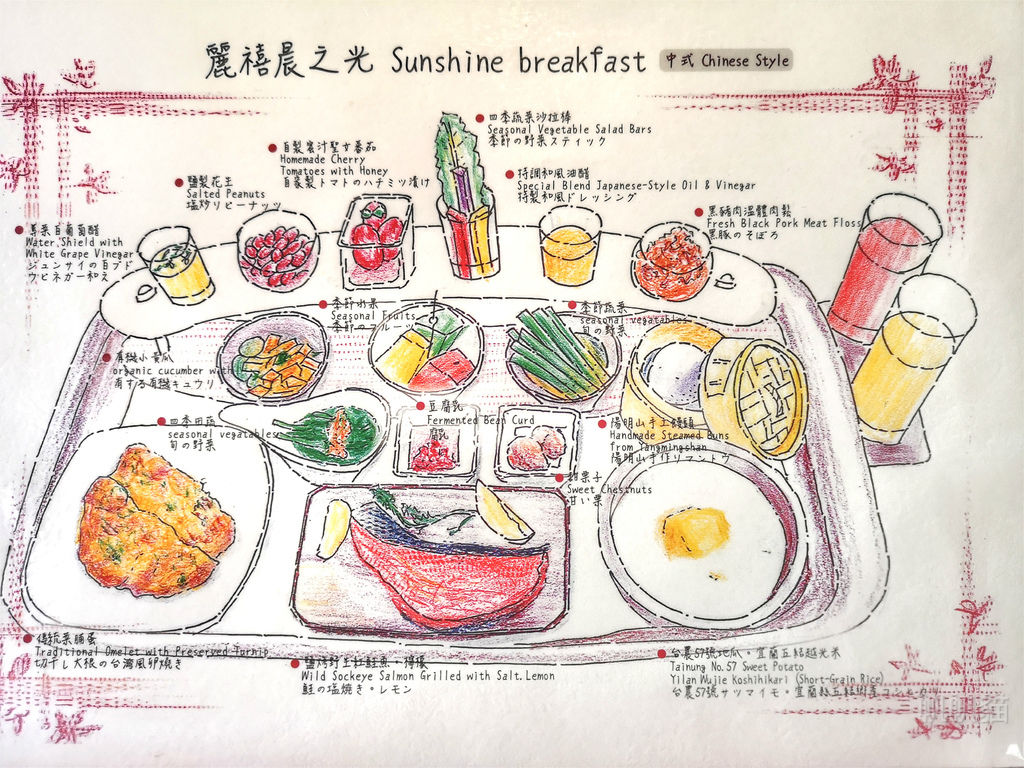 麗禧晨之光 Sunshine breakfast 中式 Chinese Style
四季蔬菜沙拉棒
Seasonal Vegetable Salad Bars
季節の野菜スティック
自製蜜汁聖女番茄
Homemade Cherry
Tomatoes with Honey
自家製トマトのハチミツ漬け
特調和風油醋
Special Blend Japanese-Style Oil & Vinegar
特製和風ドレッシング
鹽製花生
Salted Peanuts
塩炒りピーナッツ
黑豬肉溫體肉鬆
Fresh Black Pork Meat Floss
黒豚のそぼろ
蓴菜白葡萄醋
Water Shield with
White Grape Vinegar
ジュンサイの白ブド
ウビネガー和え
季節水果
Seasonal Fruits
季節のフルーツ
季節蔬菜
seasonal vegatables
旬の野菜
有機小黃瓜
organic cucumber with
有する有機キュウリ
豆腐乳
Fermented Bean Curd
腐乳
四季田蔬
seasonal vegatables
旬の野菜
陽明山手工饅頭
Handmade Steamed Buns
from Yangmingshan
陽明山手作りマントウ
甜栗子
Sweet Chestnuts
甘い栗
傳統菜脯蛋
Traditional Omelet with Preserved Turnip
切干し大根の台湾風卵焼き
鹽烤野生紅鮭魚·檸檬
Wild Sockeye Salmon Grilled with Salt. Lemon
鮭の塩焼き·レモン
台農57號地瓜·宜蘭五結越光米
Tainung No.57 Sweet Potato
Yilan Wujie Koshihikari (Short-Grain Rice)
台農57號サツマイモ·宜蘭縣五結郷産コシヒカリ